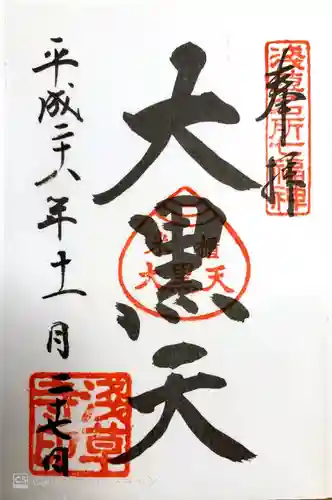 奉拝
淺草名所七福神
大黒天
米櫃
大黒天
平成二十八年十一月二十七日
淺草
寺印
CS